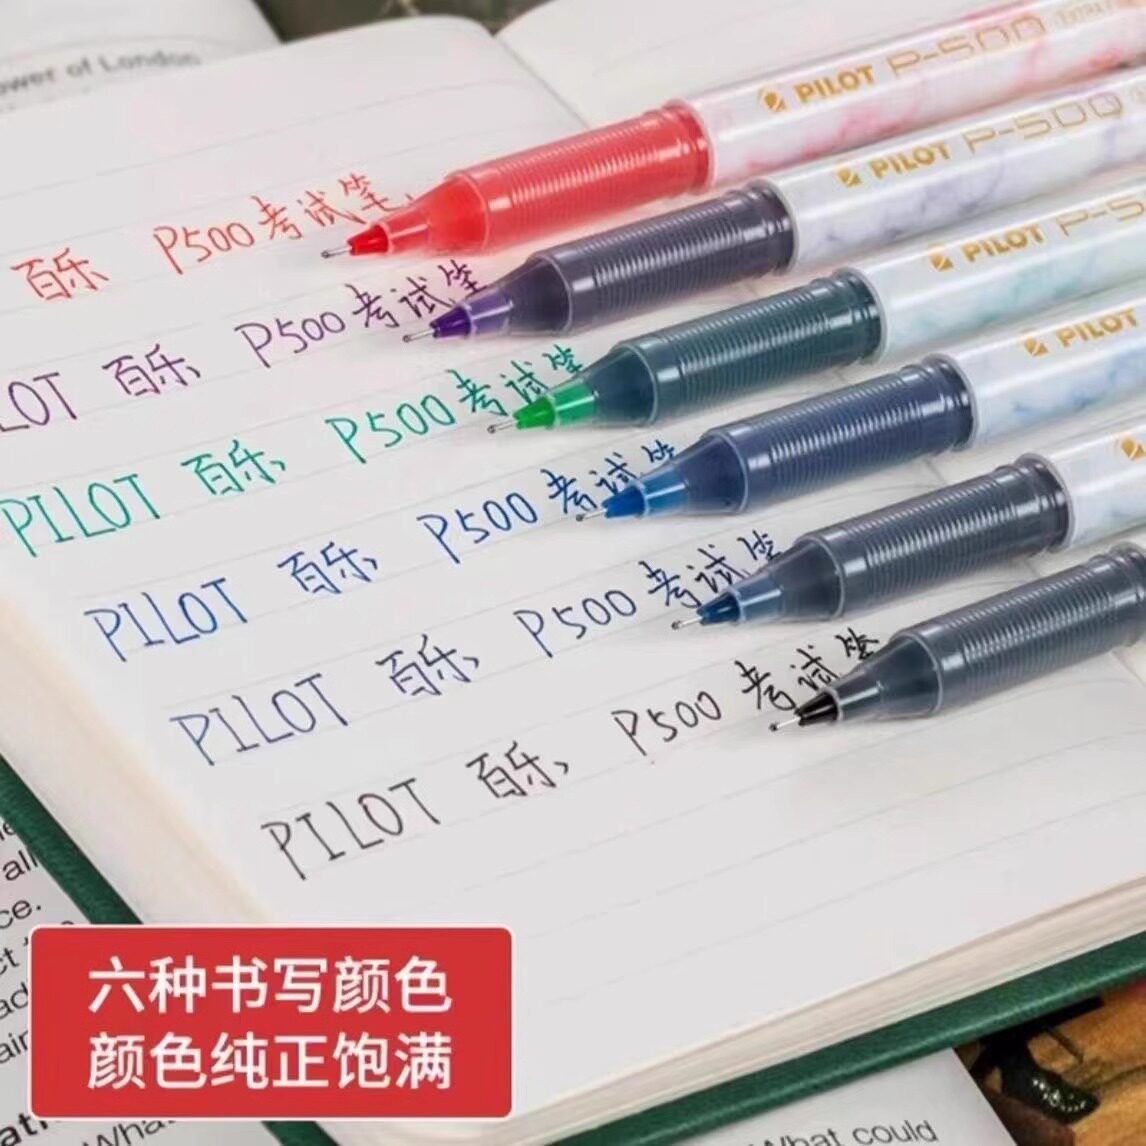 ower of London
PILOT P-500
PILOT P-500
PILOT P-5
PILOT
百乐 P500考试笔
LOT 百乐、P500考试笔
PILOT 百乐、P500考试笔
PILOT 百乐、P500考试笔
PILOT 百乐、P500考试笔
PILOT 百乐、P500考试笔
六种书写颜色
颜色纯正饱满
all
ce.
What could